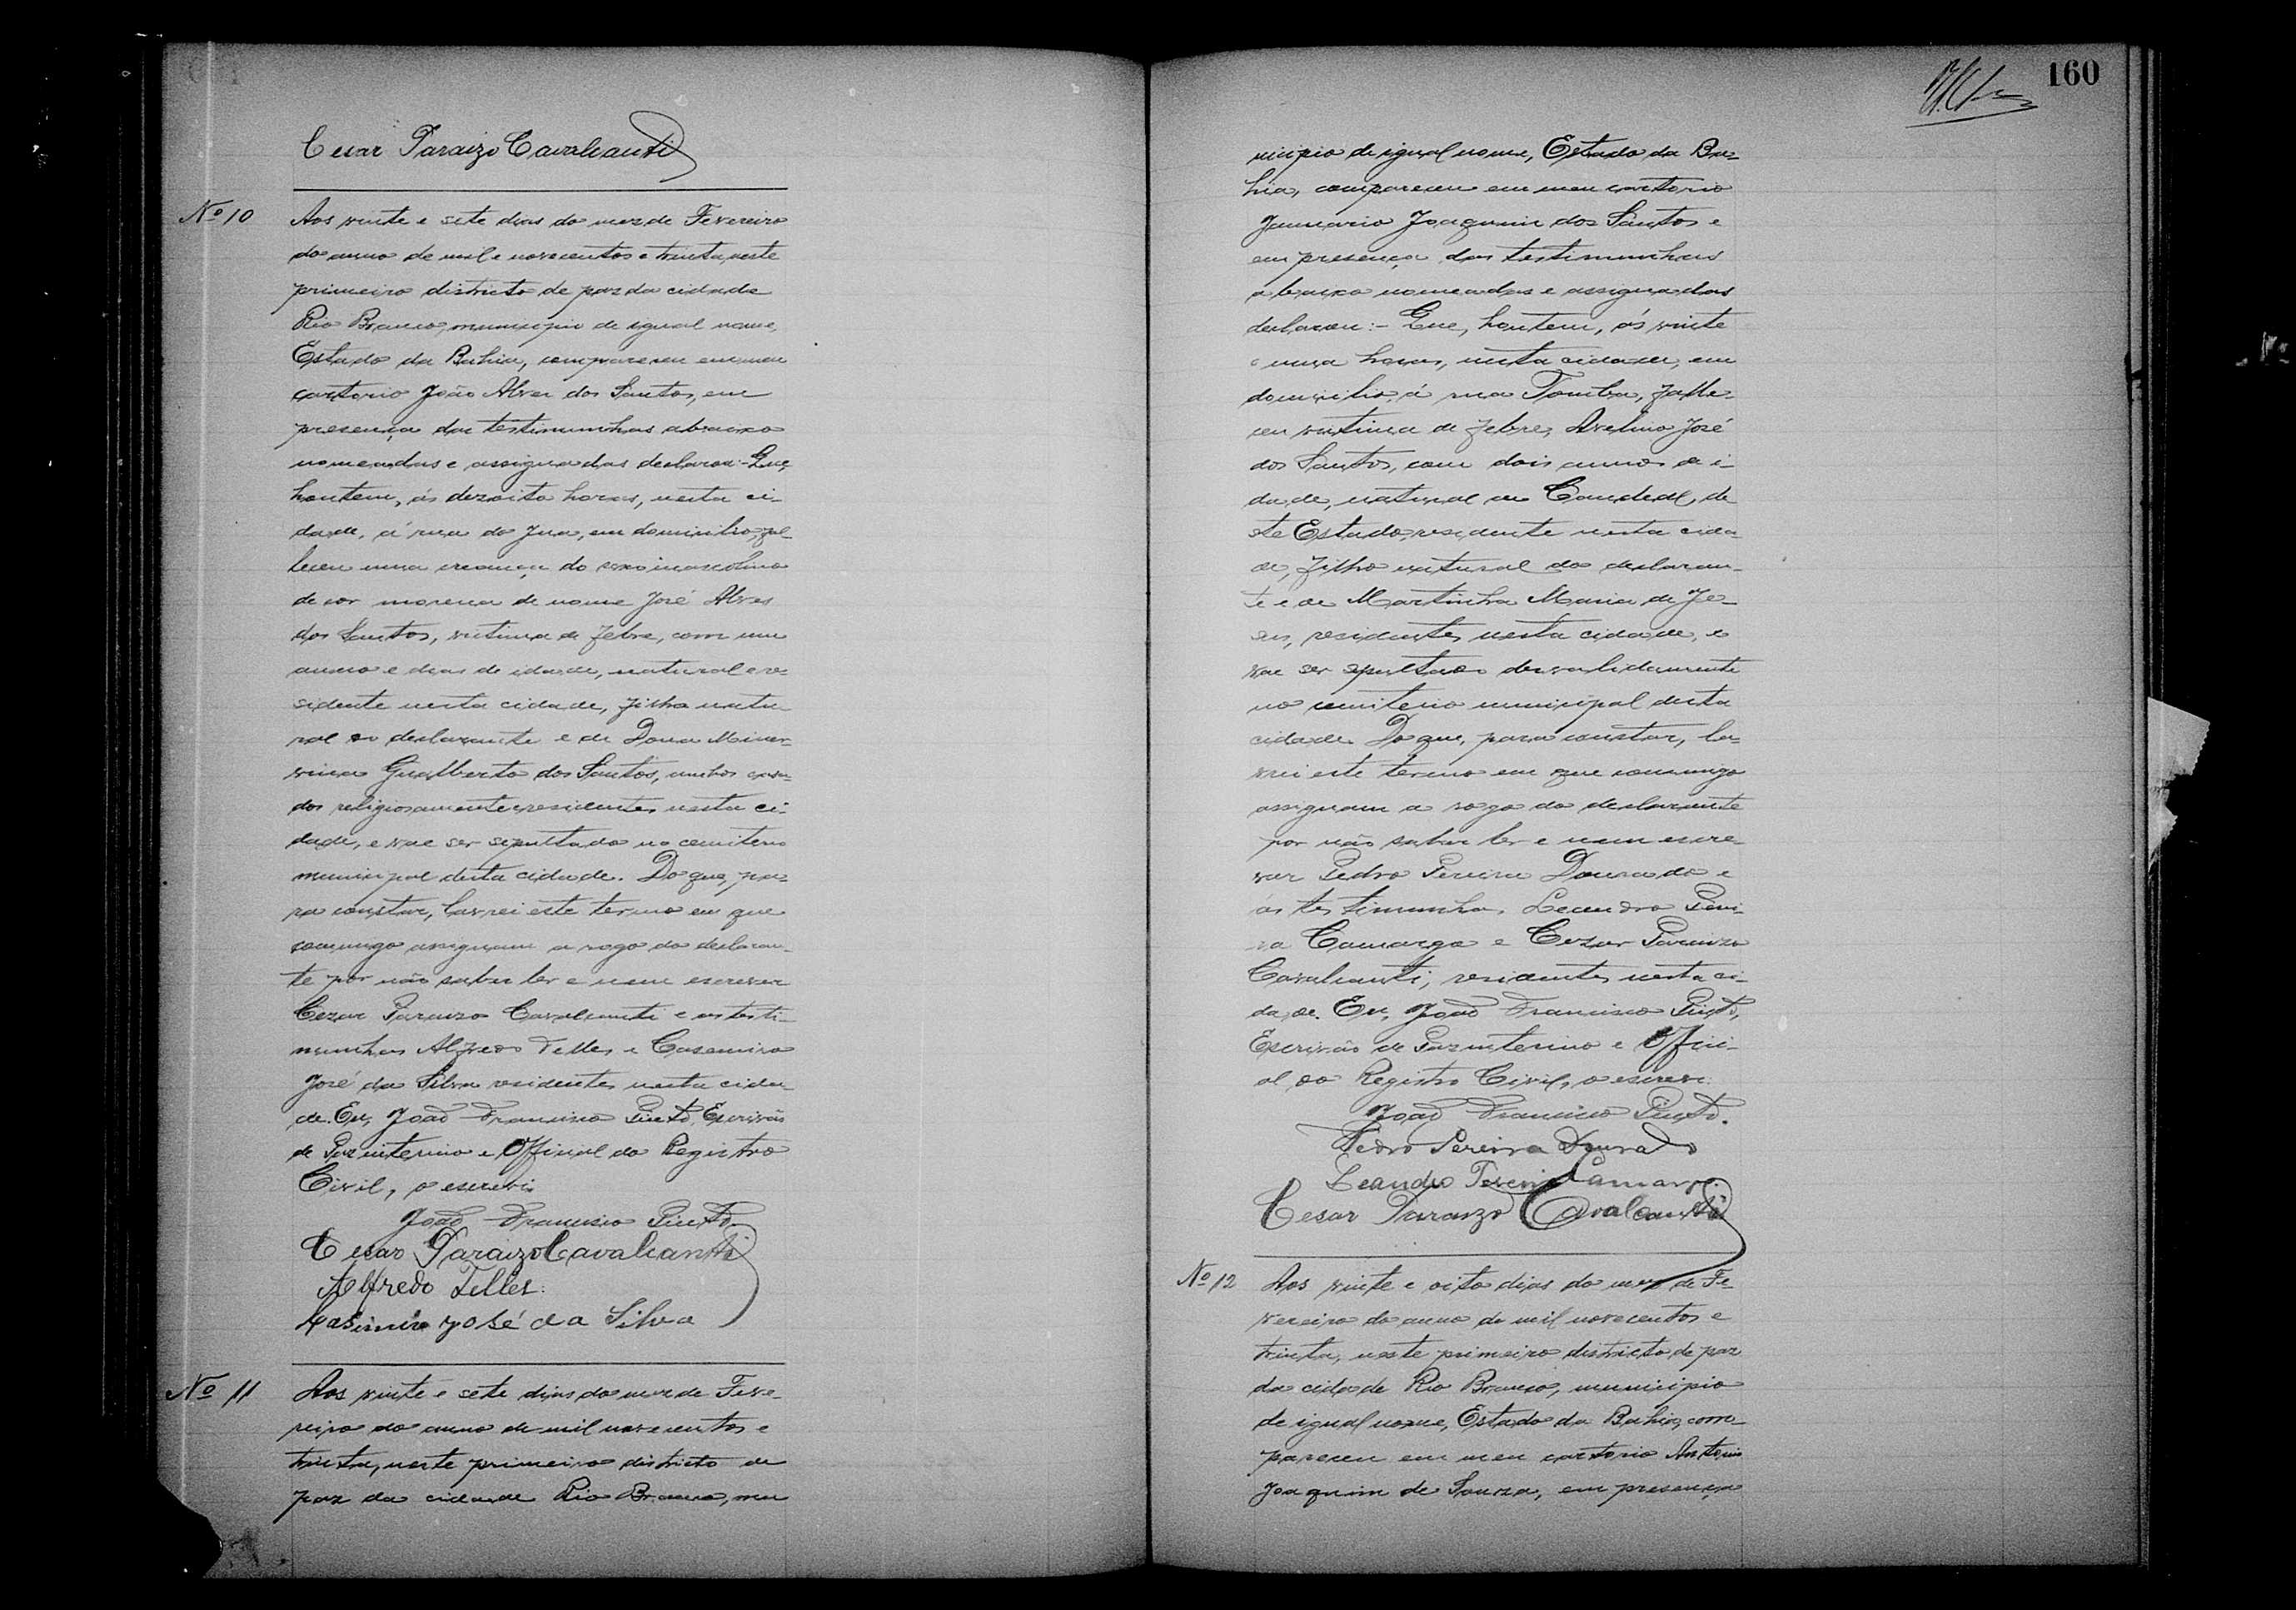 Cesar Paraizo Cavalcanti
Nº 10
Aos vinte e sete dias do mez de Fevereiro
do anno de mil e novecentos e trinta, neste
primeiro districto de paz da cidade
Rio Branco, municipio de igual nome,
Estado da Bahia, compareceu em meu
cartorio João Alves dos Santos, em
presença das testimunhas abaixo
nomeadas e assignadas declarou:- Que,
hontem, ás dezoito horas, nesta ci-
dade, á rua do Jua, em domicilio, fal-
leceu uma creança do sexo masculino
de cor morena de nome José Alves
dos Santos, victima de febre, com um
anno e dias de idade, natural e re-
sidente nesta cidade, filho natu-
ral do declarante e de Dona Miner-
vina Gualberto dos Santos, ambos casa-
dos religiosamente e residentes nesta ci-
dade, e vae ser sepultado no cemiterio
municipal desta cidade. Do que, pa-
ra constar, lavrei este termo em que
commigo assignam a rogo do declaran-
te por não saber ler e nem escrever
Cezar Paraizo Cavalcanti e as testi-
munhas Alfredo Telles e Casemiro
José da Silva residentes nesta cida-
de. Eu, João Francisco Pinto, Escrivão
de Paz interino e Official do Registro
Civil, o escrevi.
João Francisco Pinto.
Cesar Paraizo Cavalcanti
Alfredo Telles.
Casimiro José da Silva
Nº 11
Aos vinte e sete dias do mez de Feve-
reiro do anno de mil novecentos e
trinta, neste primeiro districto de
paz da cidade Rio Branco, mu
160
nicipio de igual nome, Estado da Ba-
hia, compareceu em meu cartorio
Januario Joaquim dos Santos e
em presença das testimunhas
abaixo nomeadas e assignadas
declarou:- Que, hontem, ás vinte
e uma horas, nesta cidade, em
domicilio, á rua Tomba, falle-
ceu victima de febre, Avelino José
dos Santos, com dois annos de i-
dade, natural de Condeal, de
ste Estado, residente nesta cida
de, filho natural do declaran-
te e de Martinha Maria de Je-
sus, residentes nesta cidade, e
vae ser sepultado desvalidamente
no cemiterio municipal desta
cidade. Do que, para constar, la-
vrei este termo em que commigo
assignam a rogo do declarante
por não saber ler e nem escre-
ver Pedro Pereira Dourado e
as testimunhas Leandro Perei-
ra Camargo e Cezar Paraizo
Cavalcanti, residentes nesta ci-
dade. Eu, João Francisco Pinto,
Escrivão de Paz interino e Offici-
al do Registro Civil, o escrevi.
João Francisco Pinto.
Pedro Pereira Dourado
Leandro Pereira Camargo.
Cesar Paraizo Cavalcanti
Nº 12
Aos vinte e oito dias do mez de Fe-
vereiro do anno de mil novecentos e
trinta, neste primeiro districto de paz
da cidade Rio Branco, municipio
de igual nome, Estado da Bahia, com-
pareceu em meu cartorio Antonio
Joaquim de Souza, em presença